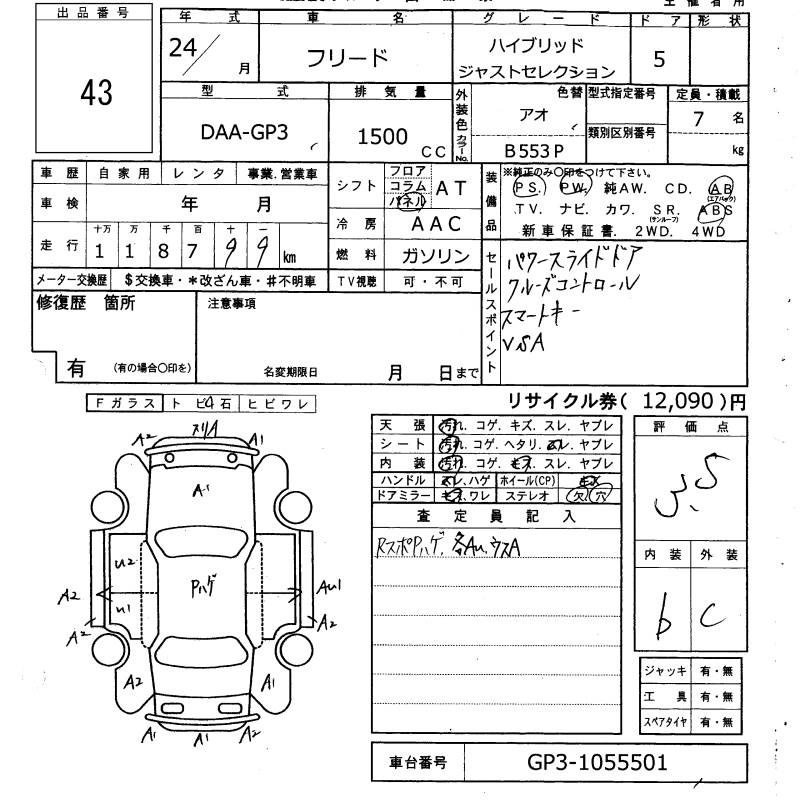 出品番号
43
年式 車名 グレード ドア 形状
24/月 フリード ハイブリッド ジャストセレクション 5
型式 排気量 外装色 カラーNo. 色替 型式指定番号 定員・積載
DAA-GP3 1500 CC アオ 7 名
B553P 類別区別番号 kg
車歴 自家用 レンタ 事業.営業車
車検 年 月
走行 十万 万 千 百 十 一
1 1 8 7 9 9 km
メーター交換歴 $交換車・*改ざん車・#不明車
シフト フロア コラム パネル AT
冷房 AAC
燃料 ガソリン
TV視聴 可・不可
装備品
※純正のみ○印をつけて下さい。
PS. PW. 純AW. CD. AB (エアバック)
TV. ナビ. カワ. SR. (サンルーフ) ABS
新車保証書. 2WD. 4WD
セールスポイント
パワースライドドア
クルーズコントロール
スマートキー
VSA
修復歴 箇所
有 (有の場合○印を)
注意事項
名変期限日 月 日まで
リサイクル券( 12,090 )円
Fガラス トビ石 ヒビワレ
天張 汚れ. コゲ. キズ. スレ. ヤブレ
シート 汚れ. コゲ. ヘタリ. スレ. ヤブレ
内装 汚れ. コゲ. キズ. スレ. ヤブレ
ハンドル スレ.ハゲ ホイール(CP) キズ
ドアミラー キズ.ワレ ステレオ 欠.穴
査定員記入
RスポPハゲ. 各Au.ウスA
評価点
3.5
内装 外装
b C
ジャッキ 有・無
工具 有・無
スペアタイヤ 有・無
A2 スリA A1
A1
U2
A2 U1 Pハゲ Au1
A2 A2
A2 A1
A1 A1 A2
車台番号 GP3-1055501